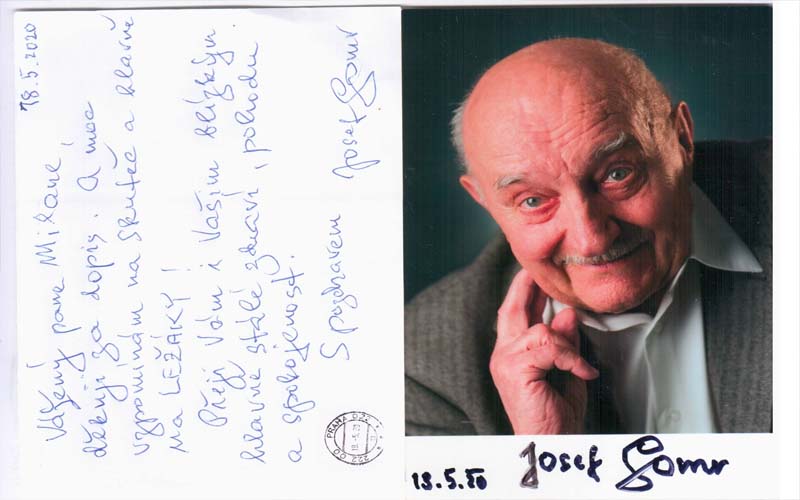 18.5.2020
Vážený pane Milane,
děkuji za dopis. A moc
vzpomínám na Skuteč a hlavně
na LEŽÁKY!
Přeji Vám i Vašim blízkým
hlavně stálé zdraví, pohodu
a spokojenost.
S pozdravem Josef Somr
PRAHA 022
18.-5.20
222 00
18.5.20 Josef Somr